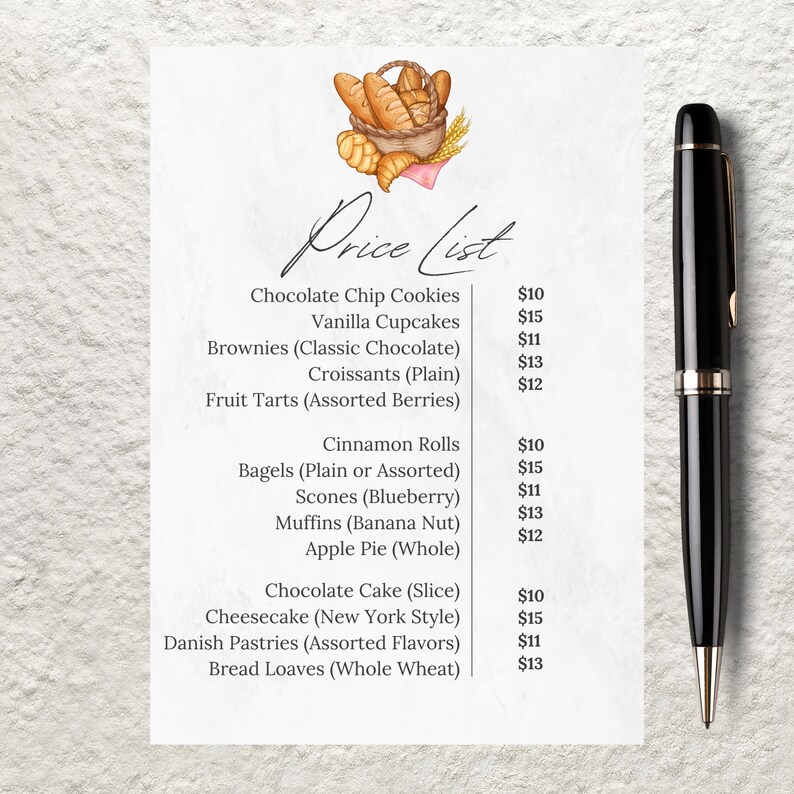 Price List
Chocolate Chip Cookies $10
Vanilla Cupcakes $15
Brownies (Classic Chocolate) $11
Croissants (Plain) $13
Fruit Tarts (Assorted Berries) $12
Cinnamon Rolls $10
Bagels (Plain or Assorted) $15
Scones (Blueberry) $11
Muffins (Banana Nut) $13
Apple Pie (Whole) $12
Chocolate Cake (Slice) $10
Cheesecake (New York Style) $15
Danish Pastries (Assorted Flavors) $11
Bread Loaves (Whole Wheat) $13